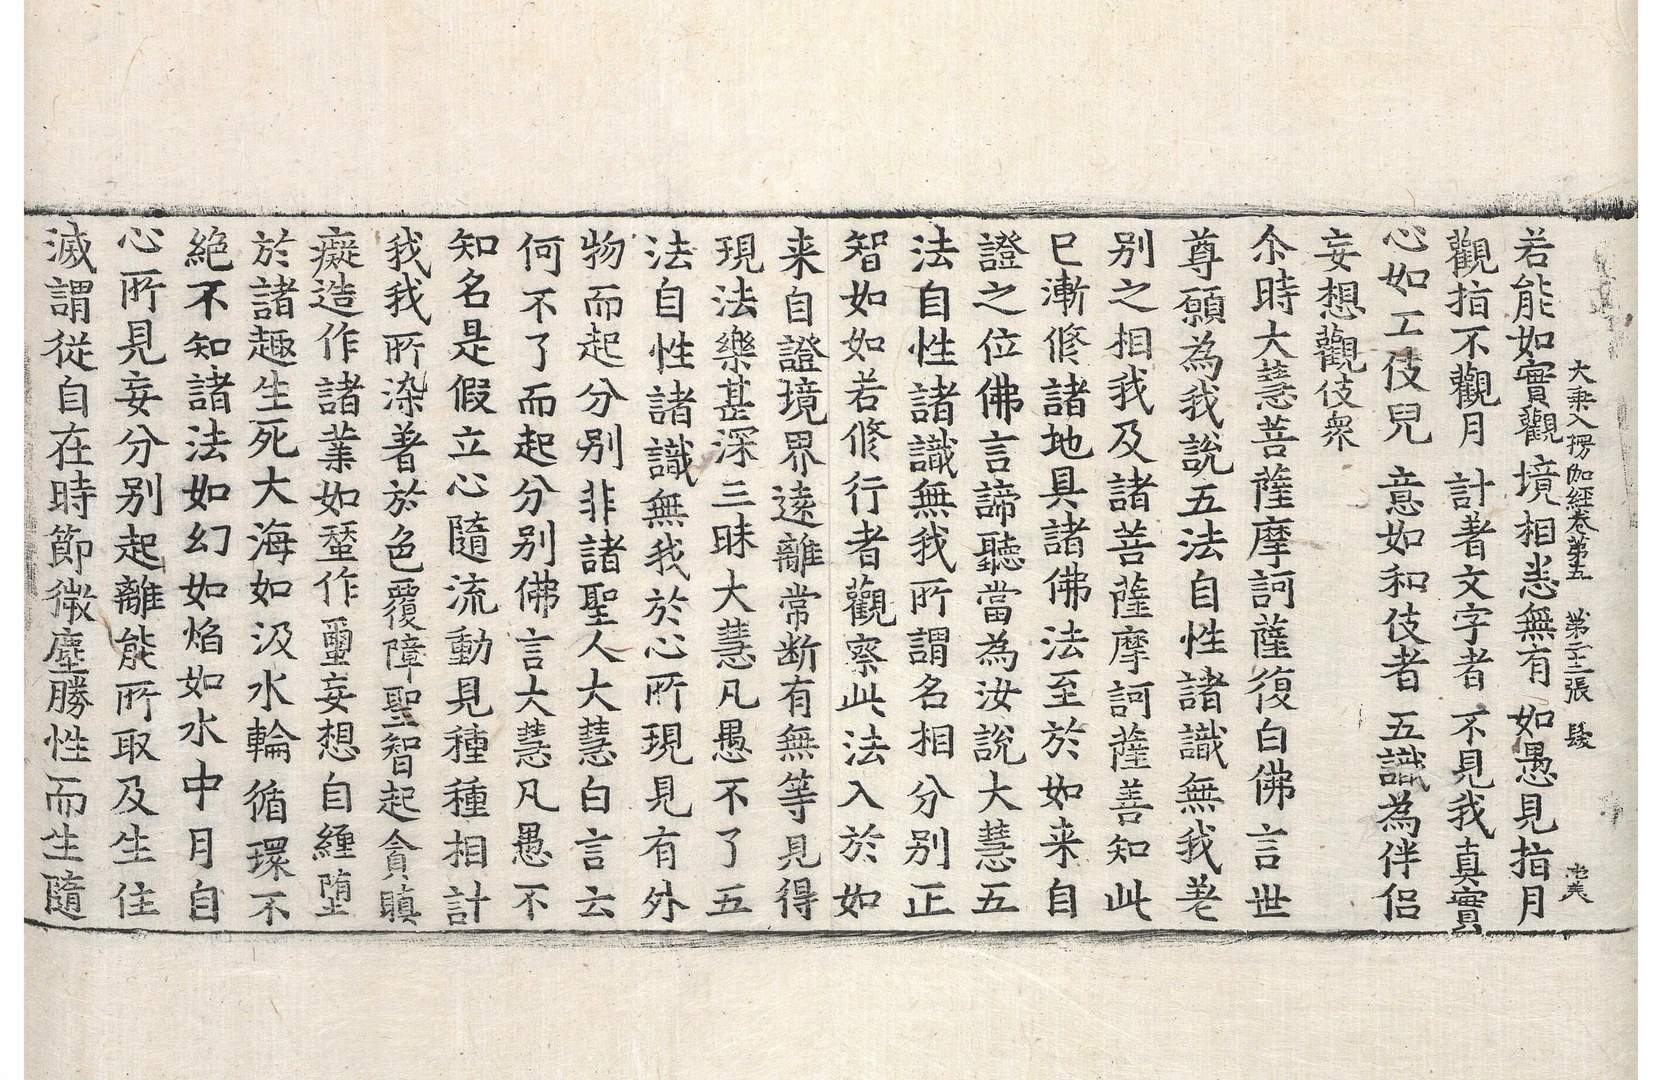 大乘入楞伽經卷第五 第二十二張 髮
若能如實觀 境相悉無有 如愚見指月
觀指不觀月 計著文字者 不見我真實
心如工伎兒 意如和伎者 五識為伴侶
妄想觀伎衆
尒時大慧菩薩摩訶薩復白佛言世
尊願為我說五法自性諸識無我差
别之相我及諸菩薩摩訶薩善知此
已漸修諸地具諸佛法至於如来自
證之位佛言諦聽當為汝說大慧五
法自性諸識無我所謂名相分别正
智如如若修行者觀察此法入於如
来自證境界遠離常断有無等見得
現法樂甚深三昧大慧凡愚不了五
法自性諸識無我於心所現見有外
物而起分别非諸聖人大慧白言云
何不了而起分别佛言大慧凡愚不
知名是假立心隨流動見種種相計
我我所染著於色覆障聖智起貪瞋
癡造作諸業如蝅作蠒妄想自纏墮
於諸趣生死大海如汲水輪循環不
絕不知諸法如幻如焰如水中月自
心所見妄分别起離能所取及生住
滅謂從自在時節微塵勝性而生隨